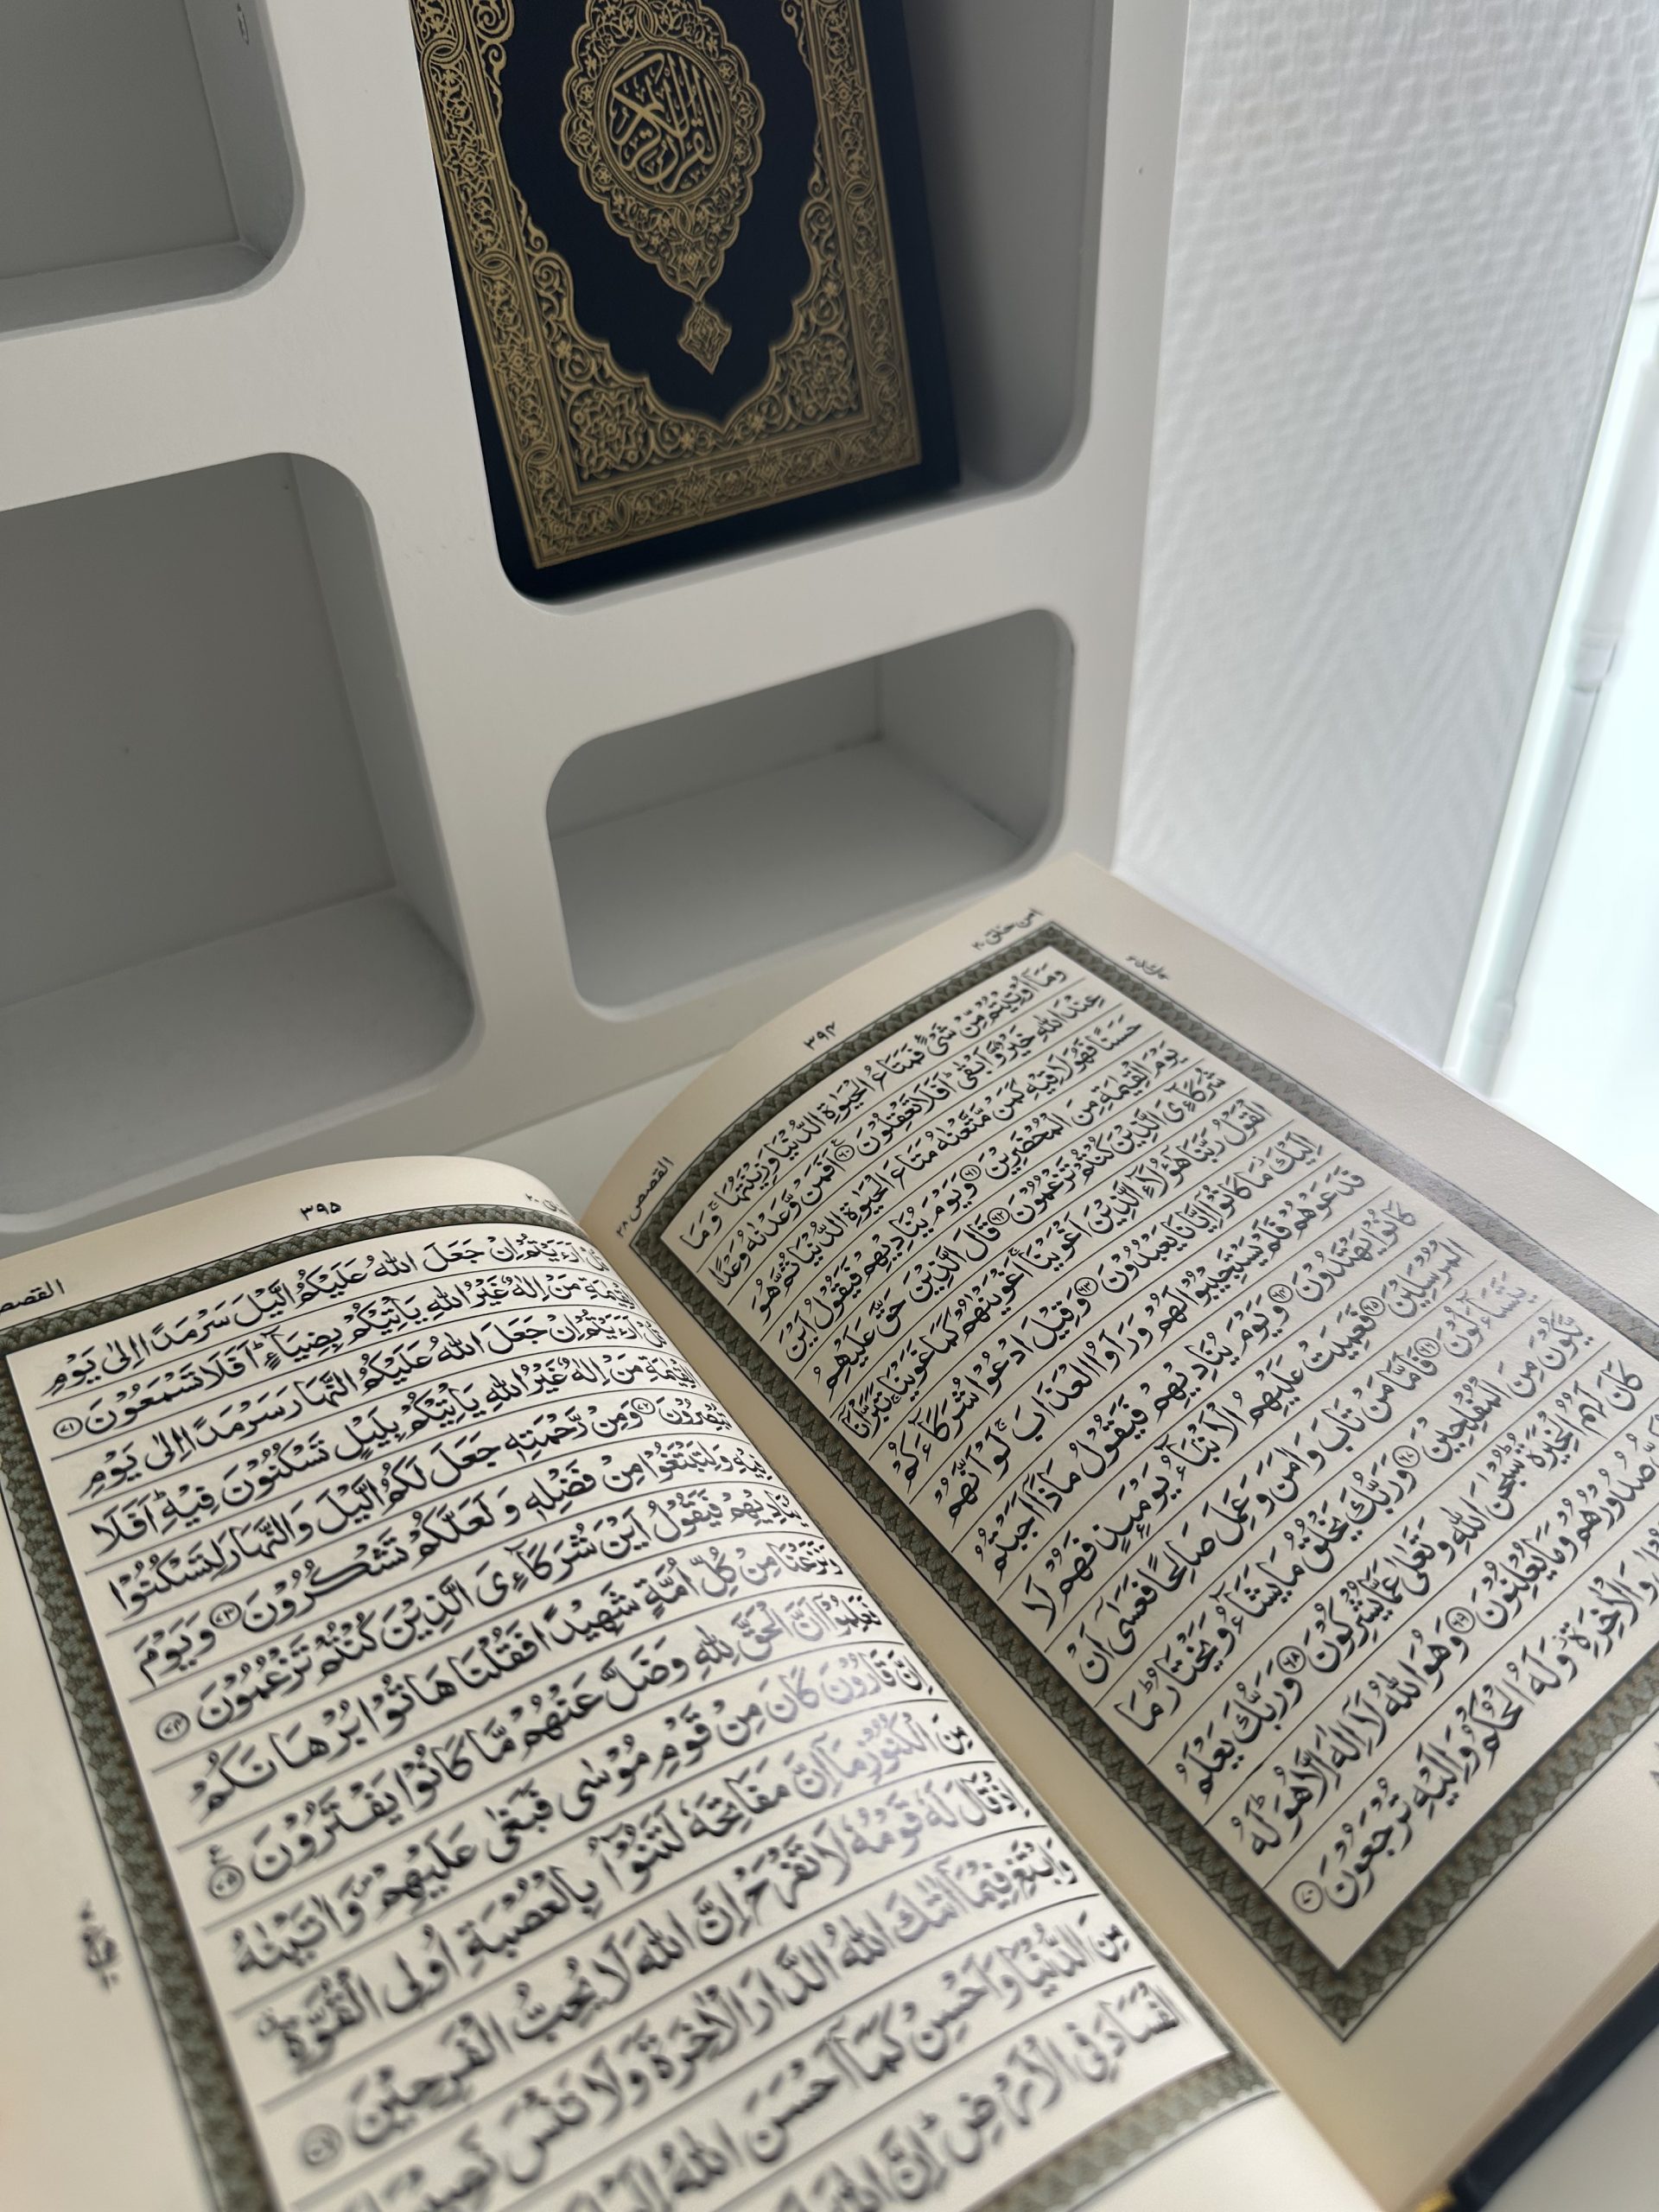 القرآن الكريم
امن خلق ٢٠
٣٩٤
القصص ٢٨
وَمَاۤ اُوۡتِيۡتُمۡ مِّنۡ شَىۡءٍ فَمَتَاعُ الۡحَيٰوةِ الدُّنۡيَا وَزِيۡنَتُهَا ۚ وَمَا
عِنۡدَ اللّٰهِ خَيۡرٌ وَّاَبۡقٰى ؕ اَفَلَا تَعۡقِلُوۡنَ ﴿٦٠﴾ اَفَمَنۡ وَّعَدۡنٰهُ وَعۡدًا
حَسَنًا فَهُوَ لَاقِيۡهِ كَمَنۡ مَّتَّعۡنٰهُ مَتَاعَ الۡحَيٰوةِ الدُّنۡيَا ثُمَّ هُوَ
يَوۡمَ الۡقِيٰمَةِ مِنَ الۡمُحۡضَرِيۡنَ ﴿٦١﴾ وَيَوۡمَ يُنَادِيۡهِمۡ فَيَقُوۡلُ اَيۡنَ
شُرَكَآءِىَ الَّذِيۡنَ كُنۡتُمۡ تَزۡعُمُوۡنَ ﴿٦٢﴾ قَالَ الَّذِيۡنَ حَقَّ عَلَيۡهِمُ
الۡقَوۡلُ رَبَّنَا هٰٓؤُلَآءِ الَّذِيۡنَ اَغۡوَيۡنَا ۚ اَغۡوَيۡنٰهُمۡ كَمَا غَوَيۡنَا ۚ تَبَرَّاۡنَاۤ
اِلَيۡكَ ۫ مَا كَانُوۡۤا اِيَّانَا يَعۡبُدُوۡنَ ﴿٦٣﴾ وَقِيۡلَ ادۡعُوۡا شُرَكَآءَكُمۡ
فَدَعَوۡهُمۡ فَلَمۡ يَسۡتَجِيۡبُوۡا لَهُمۡ وَرَاَوُا الۡعَذَابَ ۚ لَوۡ اَنَّهُمۡ
كَانُوۡا يَهۡتَدُوۡنَ ﴿٦٤﴾ وَيَوۡمَ يُنَادِيۡهِمۡ فَيَقُوۡلُ مَاذَاۤ اَجَبۡتُمُ
الۡمُرۡسَلِيۡنَ ﴿٦٥﴾ فَعَمِيَتۡ عَلَيۡهِمُ الۡاَنۡۢبَآءُ يَوۡمَئِذٍ فَهُمۡ لَا
يَتَسَآءَلُوۡنَ ﴿٦٦﴾ فَاَمَّا مَنۡ تَابَ وَاٰمَنَ وَعَمِلَ صَالِحًا فَعَسٰٓى اَنۡ
يَّكُوۡنَ مِنَ الۡمُفۡلِحِيۡنَ ﴿٦٧﴾ وَرَبُّكَ يَخۡلُقُ مَا يَشَآءُ وَيَخۡتَارُ ؕ مَا
كَانَ لَهُمُ الۡخِيَرَةُ ؕ سُبۡحٰنَ اللّٰهِ وَتَعٰلٰى عَمَّا يُشۡرِكُوۡنَ ﴿٦٨﴾ وَرَبُّكَ يَعۡلَمُ
صُدُوۡرُهُمۡ وَمَا يُعۡلِنُوۡنَ ﴿٦٩﴾ وَهُوَ اللّٰهُ لَاۤ اِلٰهَ اِلَّا هُوَ ؕ لَهُ
وَالۡاٰخِرَةِ ۫ وَلَهُ الۡحُكۡمُ وَاِلَيۡهِ تُرۡجَعُوۡنَ ﴿٧٠﴾
٣٩٥
القصص
قُلۡ اَرَءَيۡتُمۡ اِنۡ جَعَلَ اللّٰهُ عَلَيۡكُمُ الَّيۡلَ سَرۡمَدًا اِلٰى يَوۡمِ
الۡقِيٰمَةِ مَنۡ اِلٰهٌ غَيۡرُ اللّٰهِ يَاۡتِيۡكُمۡ بِضِيَآءٍ ؕ اَفَلَا تَسۡمَعُوۡنَ ﴿٧١﴾
قُلۡ اَرَءَيۡتُمۡ اِنۡ جَعَلَ اللّٰهُ عَلَيۡكُمُ النَّهَارَ سَرۡمَدًا اِلٰى يَوۡمِ
الۡقِيٰمَةِ مَنۡ اِلٰهٌ غَيۡرُ اللّٰهِ يَاۡتِيۡكُمۡ بِلَيۡلٍ تَسۡكُنُوۡنَ فِيۡهِ ؕ اَفَلَا
تُبۡصِرُوۡنَ ﴿٧٢﴾ وَمِنۡ رَّحۡمَتِهٖ جَعَلَ لَكُمُ الَّيۡلَ وَالنَّهَارَ لِتَسۡكُنُوۡا
فِيۡهِ وَلِتَبۡتَغُوۡا مِنۡ فَضۡلِهٖ وَلَعَلَّكُمۡ تَشۡكُرُوۡنَ ﴿٧٣﴾ وَيَوۡمَ
يُنَادِيۡهِمۡ فَيَقُوۡلُ اَيۡنَ شُرَكَآءِىَ الَّذِيۡنَ كُنۡتُمۡ تَزۡعُمُوۡنَ ﴿٧٤﴾
وَنَزَعۡنَا مِنۡ كُلِّ اُمَّةٍ شَهِيۡدًا فَقُلۡنَا هَاتُوۡا بُرۡهَانَكُمۡ
فَعَلِمُوۡۤا اَنَّ الۡحَقَّ لِلّٰهِ وَضَلَّ عَنۡهُمۡ مَّا كَانُوۡا يَفۡتَرُوۡنَ ﴿٧٥﴾
اِنَّ قَارُوۡنَ كَانَ مِنۡ قَوۡمِ مُوۡسٰى فَبَغٰى عَلَيۡهِمۡ ۪ وَاٰتَيۡنٰهُ
مِنَ الۡكُنُوۡزِ مَاۤ اِنَّ مَفَاتِحَهٗ لَتَنُوۡٓاُ بِالۡعُصۡبَةِ اُولِى الۡقُوَّةِ
اِذۡ قَالَ لَهٗ قَوۡمُهٗ لَا تَفۡرَحۡ اِنَّ اللّٰهَ لَا يُحِبُّ الۡفَرِحِيۡنَ ﴿٧٦﴾
وَابۡتَغِ فِيۡمَاۤ اٰتٰٮكَ اللّٰهُ الدَّارَ الۡاٰخِرَةَ وَلَا تَنۡسَ نَصِيۡبَكَ
مِنَ الدُّنۡيَا وَاَحۡسِنۡ كَمَاۤ اَحۡسَنَ اللّٰهُ اِلَيۡكَ
الۡفَسَادَ فِى الۡاَرۡضِ ؕ اِنَّ اللّٰهَ